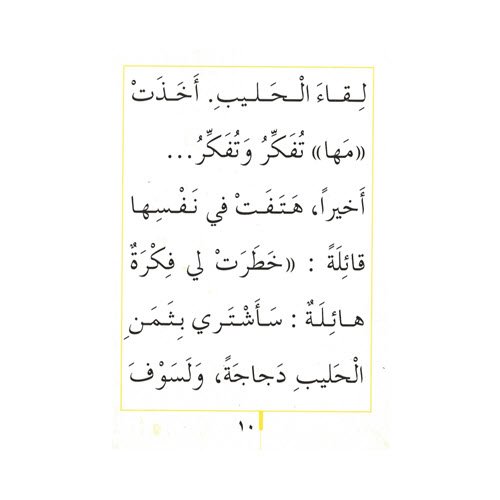 لِقاءَ الْحَليبِ. أَخَذَتْ
«مَها» تُفَكِّرُ وَتُفَكِّرُ...
أَخيراً، هَتَفَتْ في نَفْسِها
قائِلَةً : «خَطَرَتْ لي فِكْرَةٌ
هائِلَةٌ : سَأَشْتَري بِثَمَنِ
الْحَليبِ دَجاجَةً، وَلَسَوْفَ
١٠